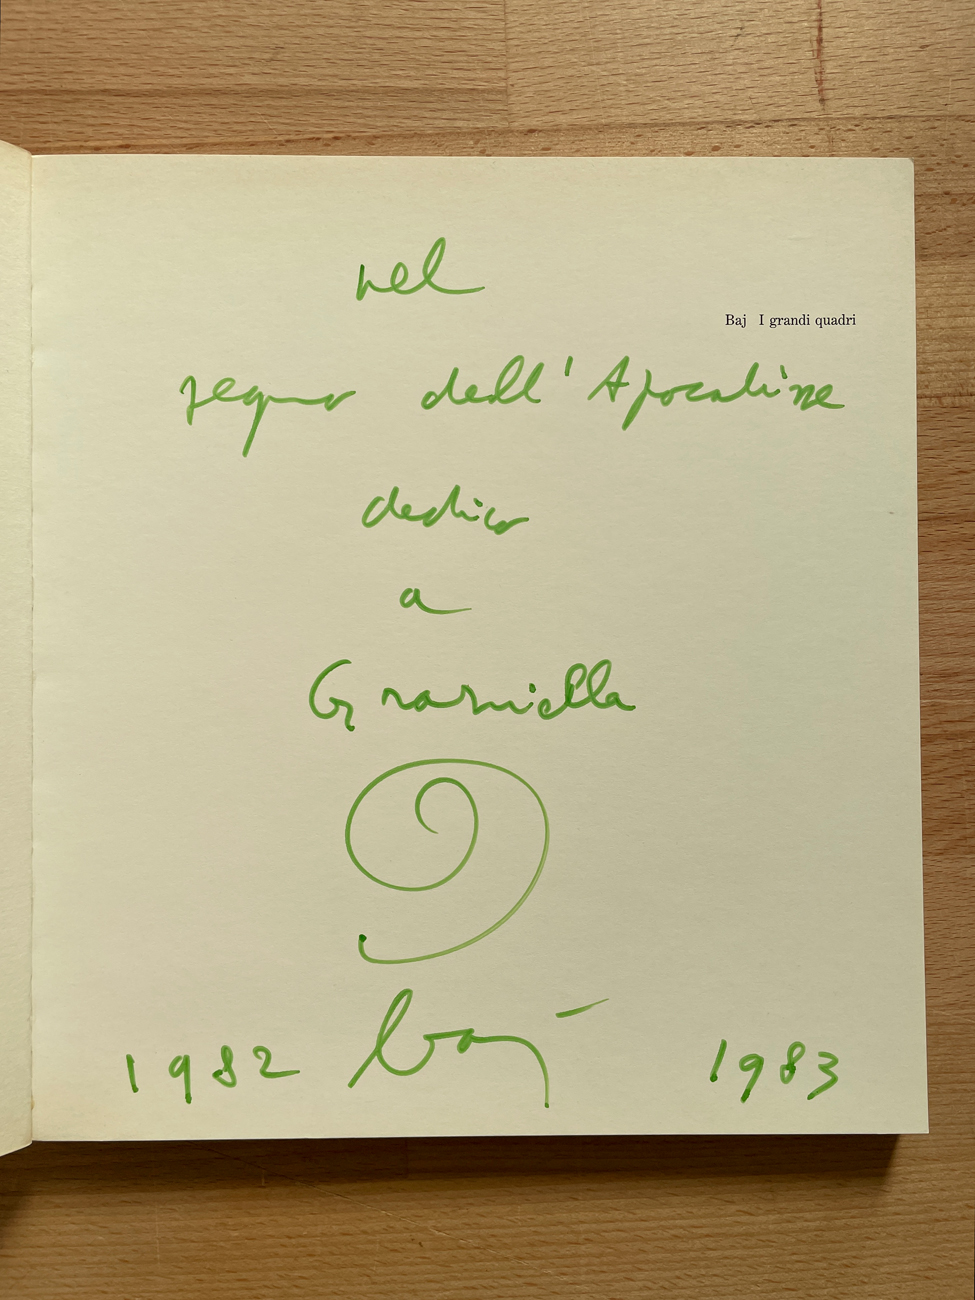 nel
Baj I grandi quadri
segno dell'Apocalisse
dedico
a
Graziella
baj
1982 1983